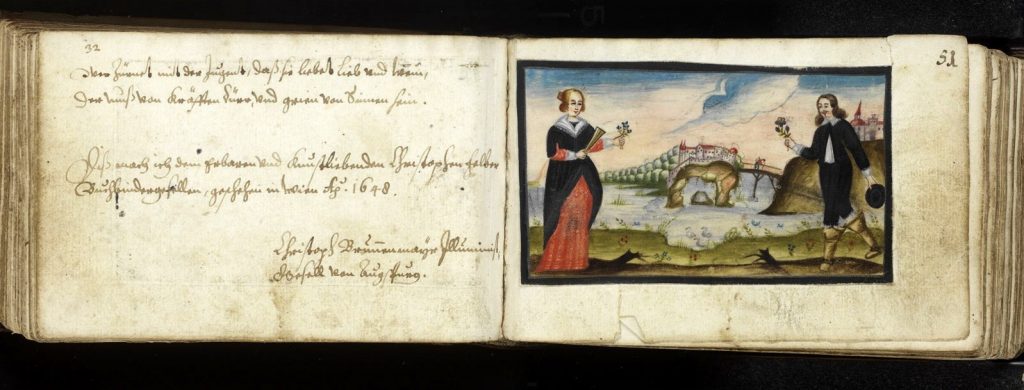 32
Wer Zürnet mit der Jugent, daß sie liebet Lieb und trew,
Der muß von Kräfften dürr, und grien von Sinnen sein.
mach ich dem Erbaren und Kunstliebenden Christophen
Buchbindergesellen, geschehen in Wien Aº. 1648.
Christoph Brunnenmayr Illuminist
Gesell von Augspurg.
51